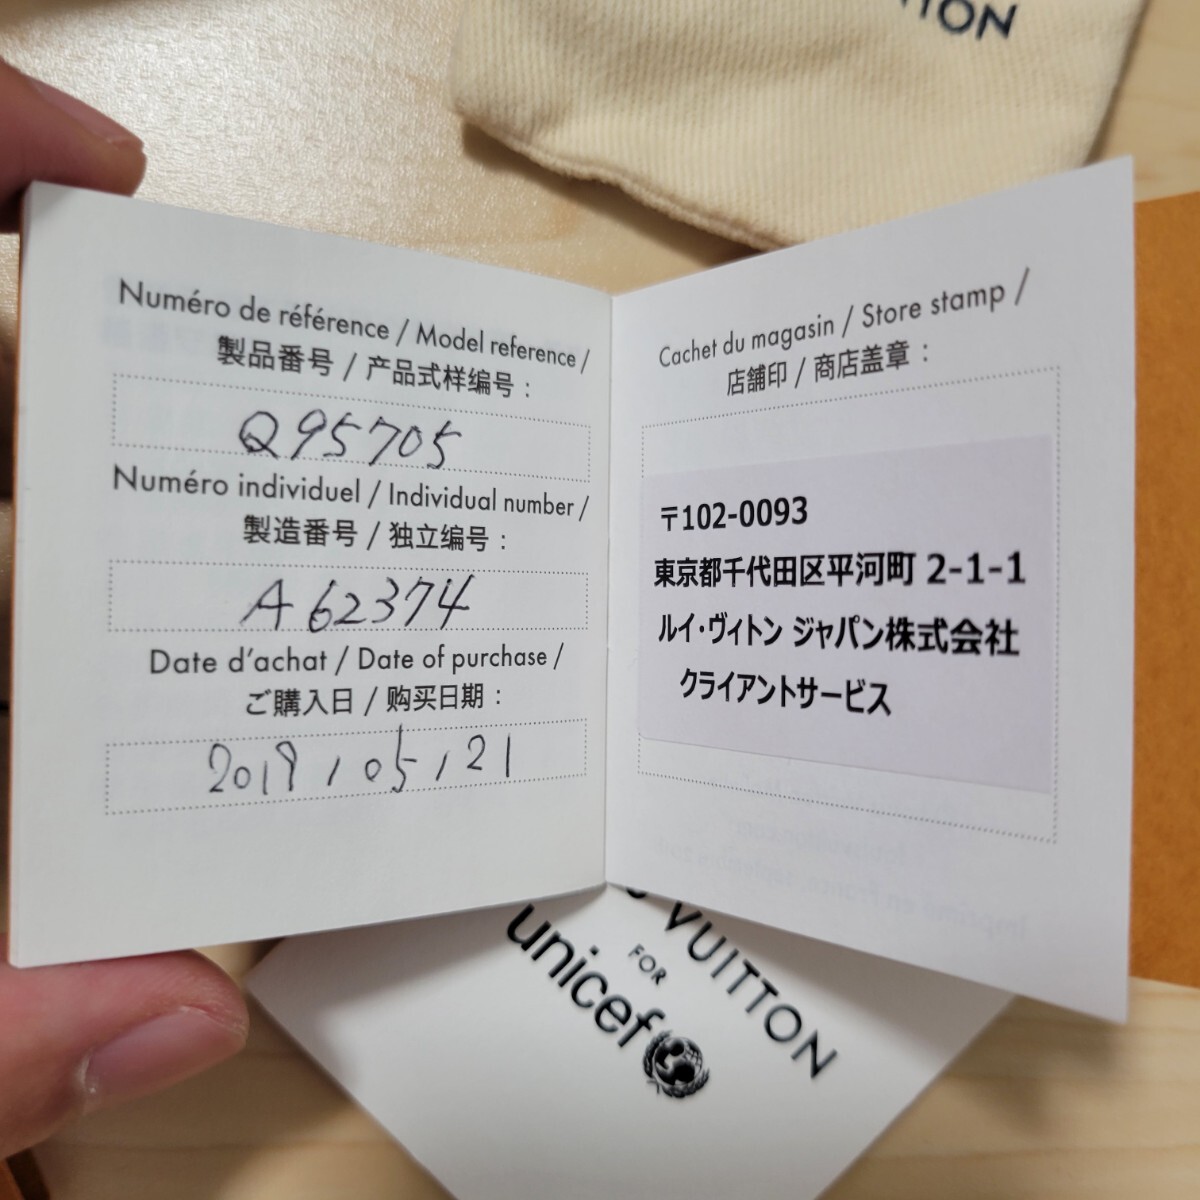 TON
Numéro de référence / Model reference /
製品番号 / 产品式样编号 :
Q95705
Numéro individuel / Individual number /
製造番号 / 独立编号 :
A62374
Date d'achat / Date of purchase /
ご購入日 / 购买日期 :
2019 / 05 / 21
Cachet du magasin / Store stamp /
店舗印 / 商店盖章 :
〒102-0093
東京都千代田区平河町 2-1-1
ルイ・ヴィトン ジャパン株式会社
クライアントサービス
VUITTON
FOR
unicef